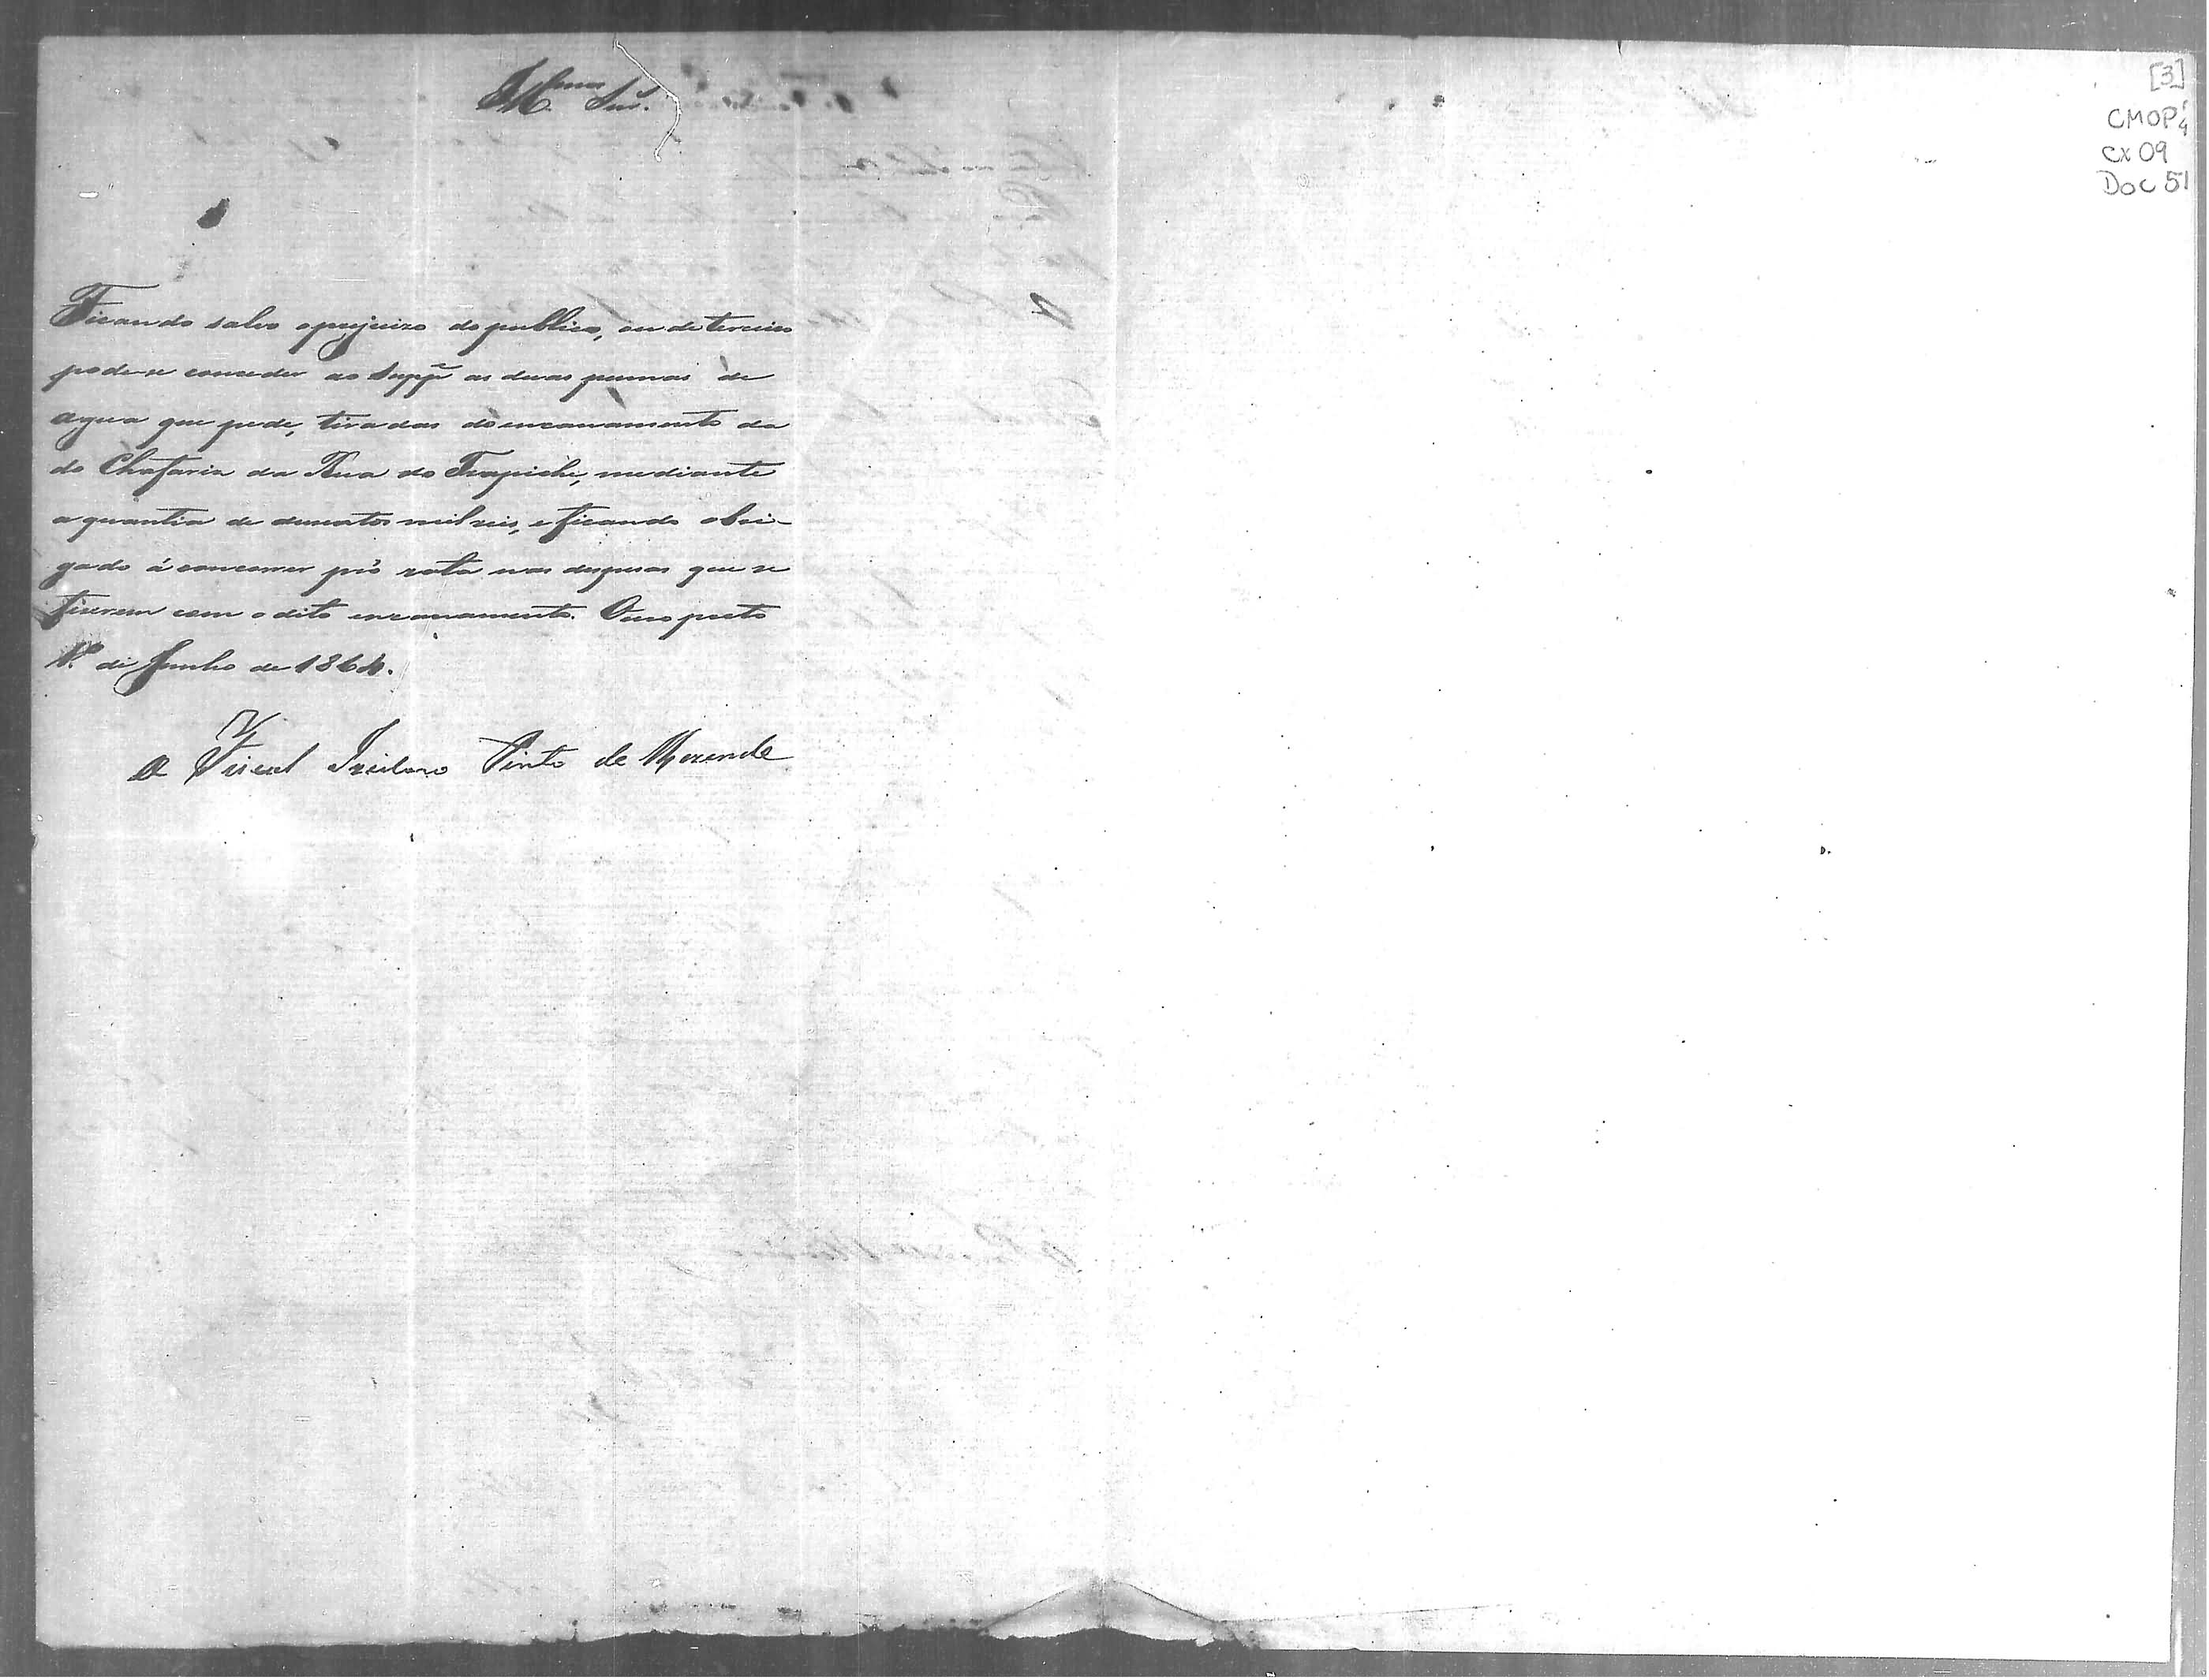 [3]
CMOP
Cx 09
Doc 51
Illmos Snr.
Ficando salvo o prejuizo do publico, ou de terceiro
pode-se conceder ao Suppe as duas pennas de
agua que pede, tiradas do encanamento da
do Chafariz da Rua do Trapiche, mediante
a quantia de dusentos mil reis, e ficando obri-
gado á concorrer pró rata nas despesas que se
fiserem com o dito encanamento. Ouro preto
1º de Junho de 1864.
O Fiscal Izidoro Pinto de Rezende